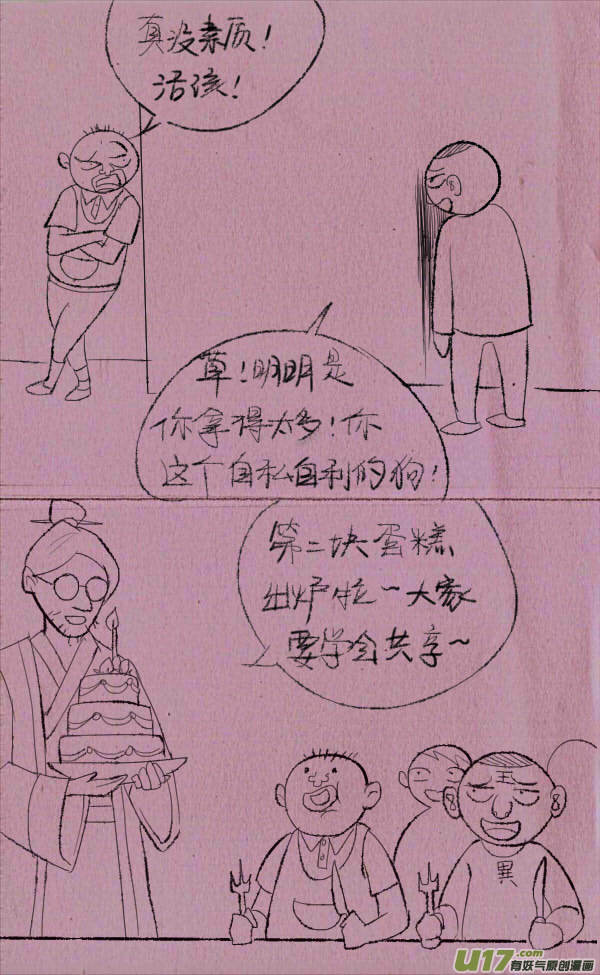 真没素质！
活该！
草！明明是
你拿得太多！你
这个自私自利的狗！
第二块蛋糕
出炉啦～大家
要学会共享～
王
異
U17.com
有妖气原创漫画